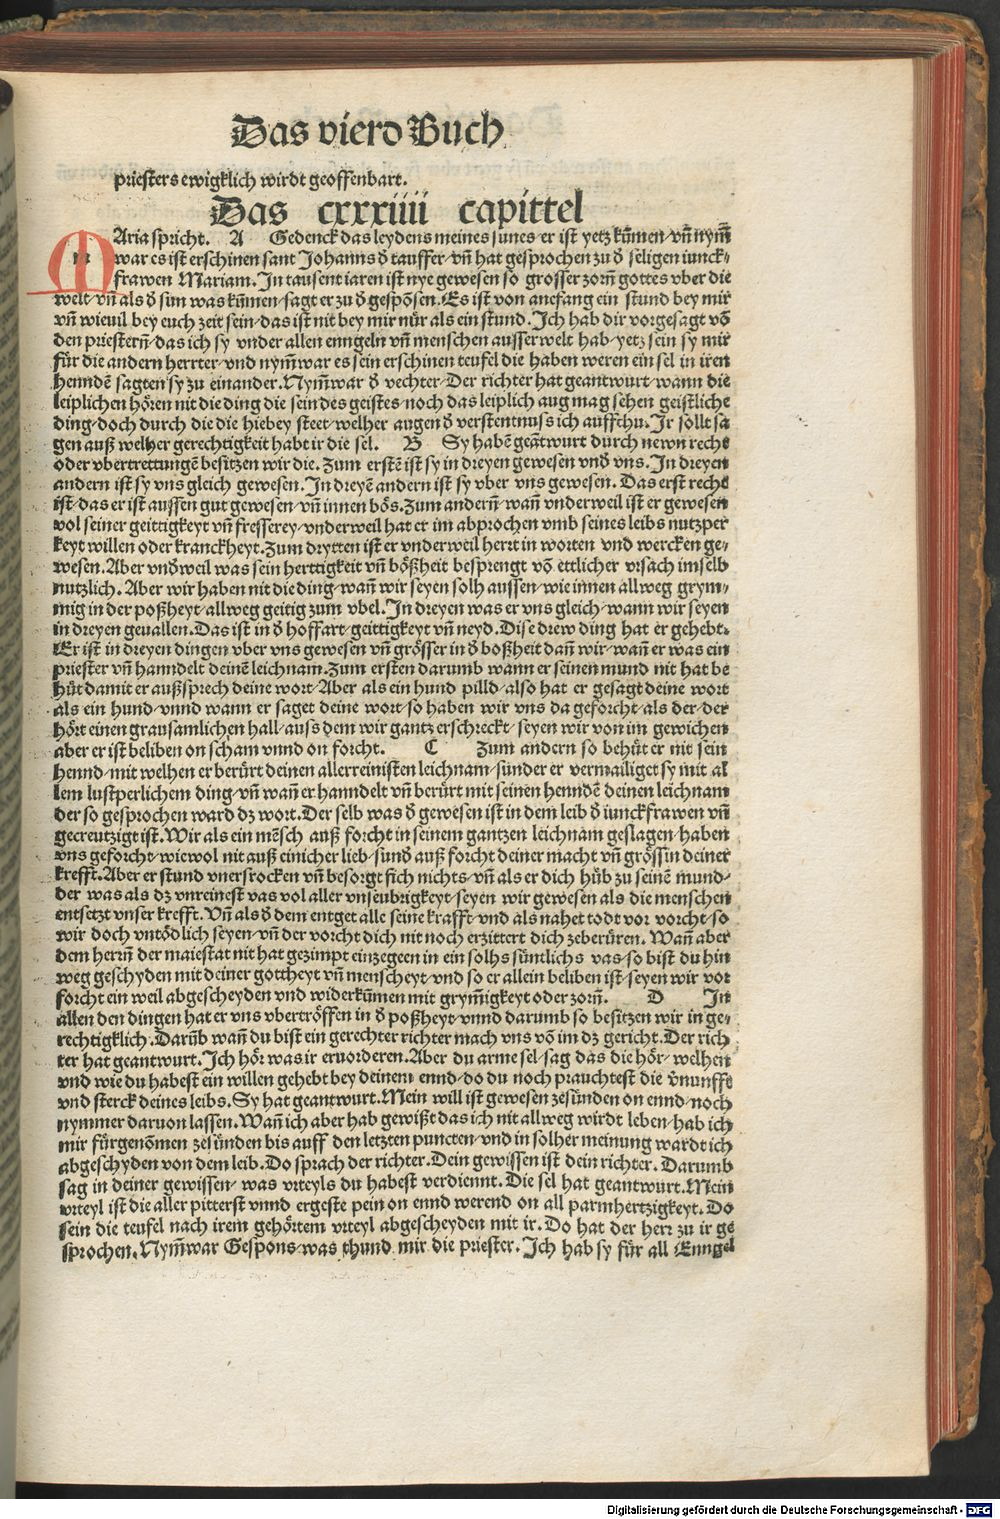 Das vierd Buch
priesters ewigklich wirdt geoffenbart.
Das cxxxiiii capittel
MAria spricht. A Gedenck das leydens meines sunes er ist yetz kūmen vñ nym̄
war es ist erschinen sant Johanns d̄ tauffer vñ hat gesprochen zu d̄ seligen iunck⸗
frawen Mariam. In tausent iaren ist nye gewesen so grosser zorn̄ gottes vber die
welt vñ als d̄ sun was kūmen sagt er zu d̄ gespōsen. Es ist von anefang ein stund bey mir
vñ wieuil bey euch zeit sein das ist nit bey mir nür als ein stund. Ich hab dir vorgesagt vō
den priestern̄ das ich sy vnder allen enngeln vñ menschen ausserwelt hab yetz sein sy mir
für die andern herrter vnd nym̄war es sein erschinen teufel die haben weren ein sel in iren
henndē sagten sy zu einander. Nym̄war d̄ vechter Der richter hat geantwurt wann die
leiplichen hören nit die ding die sein des geistes noch das leiplich aug mag sehen geistliche
ding doch durch die die hiebey steet welher augen d̄ verstentnuss ich auffthu. Ir sollt sa
gen auß welher gerechtigkeit habt ir die sel. B Sy habē geātwurt durch newn recht
oder vbertrettungē besitzen wir die. Zum erstē ist sy in dreyen gewesen vnd̄ vns. In dreyen
andern ist sy vns gleich gewesen. In dreyē andern ist sy vber vns gewesen. Das erst recht
ist das er ist aussen gut gewesen vñ innen bös. Zum andern̄ wan̄ vnderweil ist er gewesen
vol seiner geittigkeyt vñ fresserey vnderweil hat er im abprochen vmb seines leibs nutzper
keyt willen oder kranckheyt. Zum drytten ist er vnderweil herrt in worten vnd wercken ge⸗
wesen. Aber vnd̄weil was sein herttigkeit vñ bößheit besprengt vō ettlicher vrsach im selb
nutzlich. Aber wir haben nit die ding wan̄ wir seyen solh aussen wie innen allweg grym⸗
mig in der poßheyt allweg geitig zum vbel. In dreyen was er vns gleich wann wir seyen
in dreyen geuallen. Das ist in d̄ hoffart geittigkeyt vñ neyd. Dise drew ding hat er gehebt.
Er ist in dreyen dingen vber vns gewesen vñ grösser in d̄ boßheit dan̄ wir wan̄ er was ein
priester vñ hanndelt deinē leichnam. Zum ersten darumb wann er seinen mund nit hat be
hüt damit er außsprech deine wort Aber als ein hund pilld also hat er gesagt deine wort
als ein hund vnnd wann er saget deine wort so haben wir vns da geforcht als der der
hört einen grausamlichen hall auss dem wir gantz erschreckt seyen wir von im gewichen
aber er ist beliben on scham vnnd on forcht. C Zum andern so behüt er nit sein
hennd mit welhen er berürt deinen allerreinisten leichnam sunder er vermailiget sy mit al
lem lustperlichem ding vñ wan̄ er hanndelt vñ berürt mit seinen henndē deinen leichnam
der so gesprochen ward dz wort. Der selb was d̄ gewesen ist in dem leib d̄ iunckfrawen vñ
gecreutzigt ist. Wir als ein mēsch auß forcht in seinem gantzen leichnam geslagen haben
vns geforcht wiewol nit auß einicher lieb sund̄ auß forcht deiner macht vñ grössin deiner
krefft. Aber er stund vnersrocken vñ besorgt sich nichts vñ als er dich hüb zu seinē mund⸗
der was als dz vnreinest vas vol aller vnseubrigkeyt seyen wir gewesen als die menschen
entsetzt vnser krefft. Vñ als d̄ dem entget alle seine krafft vnd als nahet todt vor vorcht so
wir doch vntödlich seyen vñ der vorcht dich nit noch erzittert dich zeberüren. Wan̄ aber
dem herrn̄ der maiestat nit hat gezimpt einzegeen in ein solhs süntlichs vas so bist du hin
weg geschyden mit deiner gottheyt vñ menscheyt vnd so er allein beliben ist seyen wir vor
forcht ein weil abgescheyden vnd widerkūmen mit grym̄igkeyt oder zorn̄. D In
allen den dingen hat er vns vbertröffen in d̄ poßheyt vnnd darumb so besitzen wir in ge⸗
rechtigklich. Darūb wan̄ du bist ein gerechter richter mach vns vō im dz gericht. Der rich
ter hat geantwurt. Ich hör was ir eruorderen. Aber du arme sel sag das die hör welhen
vnd wie du habest ein willen gehebt bey deinem ennd do du noch prauchtest die v̄nunfft
vnd sterck deines leibs. Sy hat geantwurt. Mein will ist gewesen zesünden on ennd noch
nymmer daruon lassen. Wan̄ ich aber hab gewißt das ich nit allweg wirdt leben hab ich
mir fürgenōmen zesünden bis auff den letzten puncten vnd in solher meinung wardt ich
abgeschyden von dem leib. Do sprach der richter. Dein gewissen ist dein richter. Darumb
sag in deiner gewissen was vrteyls du habest verdiennt. Die sel hat geantwurt. Mein
vrteyl ist die aller pitterst vnnd ergeste pein on ennd werend on all parmhertzigkeyt. Do
sein die teufel nach irem gehörtem vrteyl abgescheyden mit ir. Do hat der herr zu ir ge
sprochen. Nym̄war Gespons was thund mir die priester. Ich hab sy für all Enngel
Digitalisierung gefördert durch die Deutsche Forschungsgemeinschaft - DFG